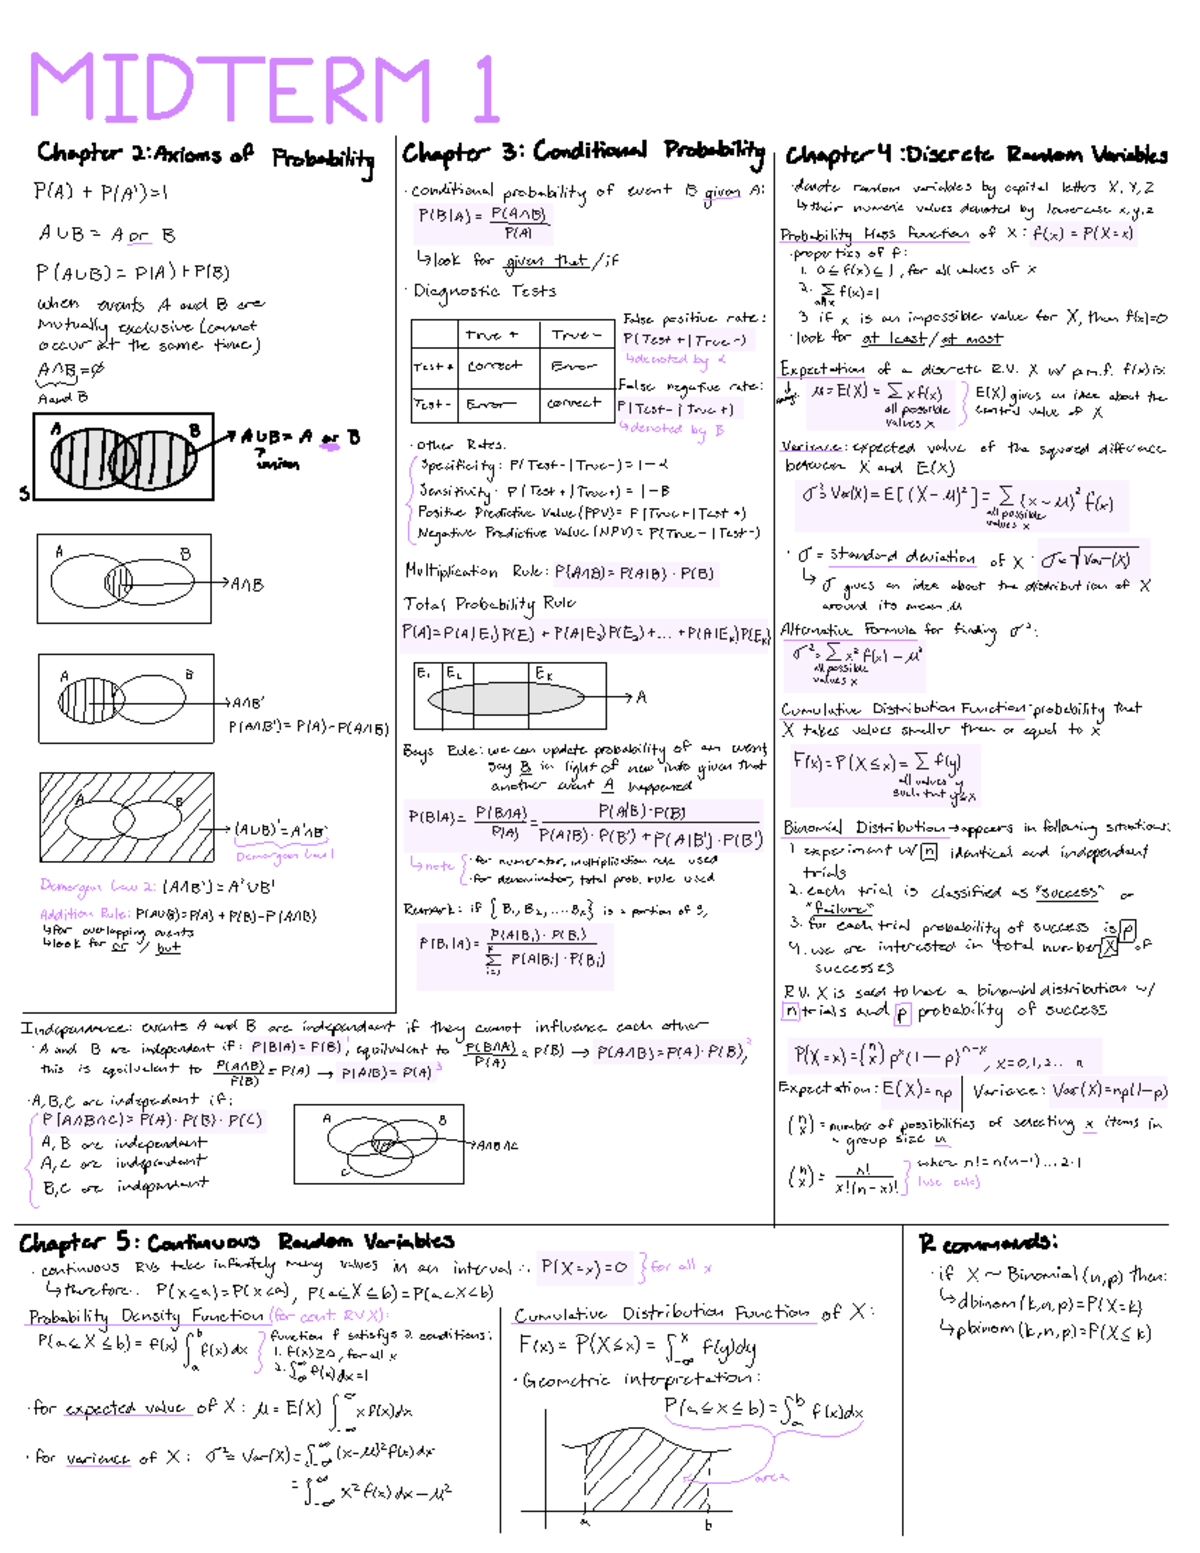 MIDTERM 1
Chapter 2: Axioms of Probability
P(A) + P(A')=1
A∪B = A or B
P(A∪B) = P(A)+P(B)
when events A and B are
mutually exclusive (cannot
occur at the same time)
A∩B=∅
A and B
A B
S
A∪B = A or B
union
A B
A∩B
A B
A∩B'
P(A∩B') = P(A)-P(A∩B)
A B
(A∪B)'=A'∩B'
Demorgan Law 1
Demorgan Law 2: (A∩B') = A'∪B'
Addition Rule: P(A∪B)=P(A)+P(B)-P(A∩B)
↳for overlapping events
↳look for or / but
Chapter 3: Conditional Probability
·conditional probability of event B given A:
P(B|A) = P(A∩B)/P(A)
↳look for given that/if
·Diagnostic Tests
True + True -
Test + correct Error
Test - Error correct
False positive rate:
P(Test+|True-)
↳denoted by α
False negative rate:
P(Test-|True+)
↳denoted by B
·Other Rates:
Specificity: P(Test-|True-)=1-α
Sensitivity: P(Test+|True+)=1-B
Positive Predictive Value (PPV) = P(True+|Test+)
Negative Predictive Value (NPV) = P(True-|Test-)
Multiplication Rule: P(A∩B)=P(A|B)·P(B)
Total Probability Rule
P(A)=P(A|E₁)P(E₁) + P(A|E₂)P(E₂)+... +P(A|Eₖ)P(Eₖ)
E₁ E₂ Eₖ
A
Bays Rule: we can update probability of an event,
say B in light of new info given that
another event A happened
P(B|A) = P(B∩A)/P(A) = P(A|B)·P(B)/P(A|B)·P(B') + P(A|B')·P(B')
↳note
·for numerator, multiplication rule used
·for denominator, total prob. rule used
Remark: if {B₁, B₂, ...Bₖ} is a portion of S,
P(B₁|A) = P(A|B₁)·P(B₁)/Σ P(A|Bᵢ)·P(Bᵢ)
Independence: events A and B are independant if they cannot influence each other
·A and B are independent if: P(B|A) = P(B)¹, equilvalent to P(B∩A)/P(A) = P(B) → P(A∩B)=P(A)·P(B),²
this is equilvalent to P(A∩B)/P(B) = P(A) → P(A|B)=P(A)³
·A,B,C are independent if:
P(A∩B∩C)=P(A)·P(B)·P(C)
A, B are independant
A, C are independant
B,C are independant
A B C
A∩B∩C
Chapter 4: Discrete Random Variables
·denote random variables by capital letters X, Y, Z
↳their numeric values denoted by lowercase x,y,z
Probability Mass Function of X: f(x) = P(X=x)
·properties of f:
1. 0≤f(x)≤1, for all values of x
2. Σ f(x)=1
all x
3 if x is an impossible value for X, then f(x)=0
·look for at least/at most
Expectation of a discrete R.V. X w/ p.m.f. f(x) is:
μ=E(X) = Σ xf(x)
all possible
values x
E(X) gives an idea about the
central value of X
Variance: expected value of the squared difference
between X and E(X)
σ²=Var(X) = E[(X-μ)²] = Σ (x-μ)² f(x)
all possible
values x
·σ = standard deviation of X: σ=√Var(X)
↳σ gives an idea about the distribution of X
around its mean μ
Alternative Formula for finding σ²:
σ²=Σ x² f(x) - μ²
all possible
values x
Cumulative Distribution Function: probability that
X takes values smaller than or equal to x
F(x)=P(X≤x) = Σ f(y)
all values y
such that y≤x
Binomial Distribution→appears in following situations:
1 experiment w/ n identical and independant
trials
2. each trial is classified as "success" or
"failure"
3. for each trial probability of success is p
4. we are interested in total number X of
successes
R.V. X is said to have a binomial distribution w/
n trials and p probability of success
P(X=x) = (n x) pˣ(1-p)ⁿ⁻ˣ, x=0,1,2.. n
Expectation: E(X)=np | Variance: Var(X)=np(1-p)
(n x) = number of possibilities of selecting x items in
a group size n
(n x) = n!/x!(n-x)!
where n!=n(n-1)...2·1
(use calc)
Chapter 5: Continuous Random Variables
·continuous RVs take infinitely many values in an interval ∴ P(X=x)=0 }for all x
↳therefore: P(X≤a)=P(X<a), P(a≤X≤b)=P(a<X<b)
Probability Density Function (for cont. RV X):
P(a≤X≤b) = f(x) ∫ₐᵇ f(x)dx
function f satisfys 2 conditions:
1. f(x)≥0, for all x
2. ∫ f(x)dx=1
·for expected value of X: μ = E(X) ∫ xf(x)dx
·for variance of X: σ² = Var(X) = ∫ (x-μ)²f(x)dx
= ∫ x² f(x)dx - μ²
Cumulative Distribution Function of X:
F(x) = P(X≤x) = ∫ f(y)dy
·Geometric interpretation:
P(a≤x≤b) = ∫ₐᵇ f(x)dx
area
a b
R commands:
·if X ~ Binomial (n,p) then:
↳dbinom(k,n,p)=P(X=k)
↳pbinom(k,n,p)=P(X≤k)